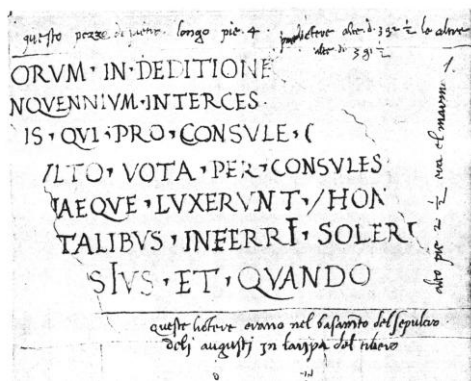 questo pezzo di pietre longo pie · 4 · le litere alte · d · 3 92 ½ le altre
alte di 3 91 ½
ORVM · IN · DEDITIONE
NQVENNIVM · INTERCES
IS , QVI · PRO , CONSVLE , (
VLTO , VOTA , PER , CONSVLES
AEQVE , LVXERVNT , / HON
TALIBVS , INFERRI , SOLER
SIVS , ET , QVANDO
alto pie 2 ½ era el marmo 1.
queste litere erano nel basamto del sepulcro
delj augustj in la ripa del tibero